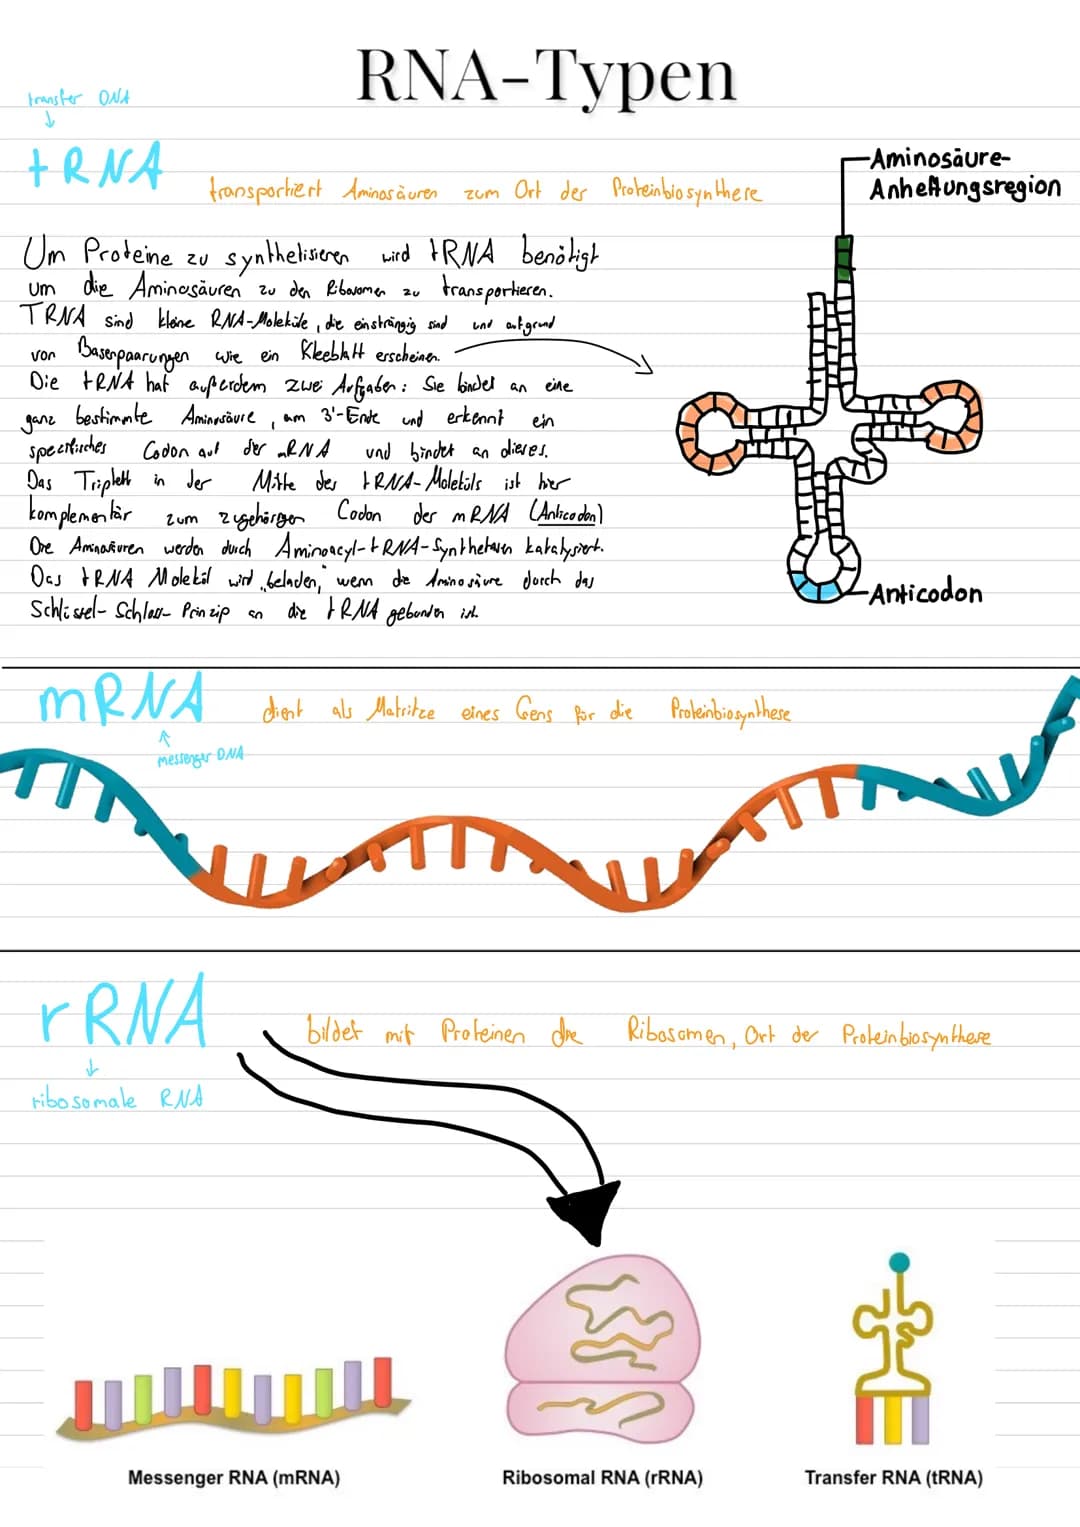 RNA-Typen
transfer DNA
tRNA
transportiert Aminosäuren zum Ort der Proteinbiosynthese
Aminosäure-
Anheftungsregion
Um Proteine zu synthelisieren wird tRNA benötigt
um die Aminosäuren zu den Ribosomen zu transportieren.
TRNA sind kleine RNA-Moleküle, die einsträngig sind und aufgrund
von Basenpaarungen wie ein Kleeblatt erscheinen.
Die tRNA hat außerdem zwei Aufgaben: Sie bindet an eine
ganz bestimmte Aminosäure, am 3'-Ende und erkennt ein
spezifisches Codon auf der mRNA und bindet an dieses.
Das Triplett in der Mitte des tRNA-Moleküls ist hier
komplementär zum zugehörigen Codon der mRNA (Anticodon)
Die Aminosäuren werden durch Aminoacyl-tRNA-Synthetasen katalysiert.
Das tRNA Molekül wird „beladen," wenn die Aminosäure durch das
Schlüssel-Schloss-Prinzip an die tRNA gebunden ist.
Anticodon
mRNA
dient als Matritze eines Gens für die Proteinbiosynthese
messenger DNA
rRNA
bildet mit Proteinen die Ribosomen, Ort der Proteinbiosynthese
ribosomale RNA
Messenger RNA (mRNA)
Ribosomal RNA (rRNA)
Transfer RNA (tRNA)